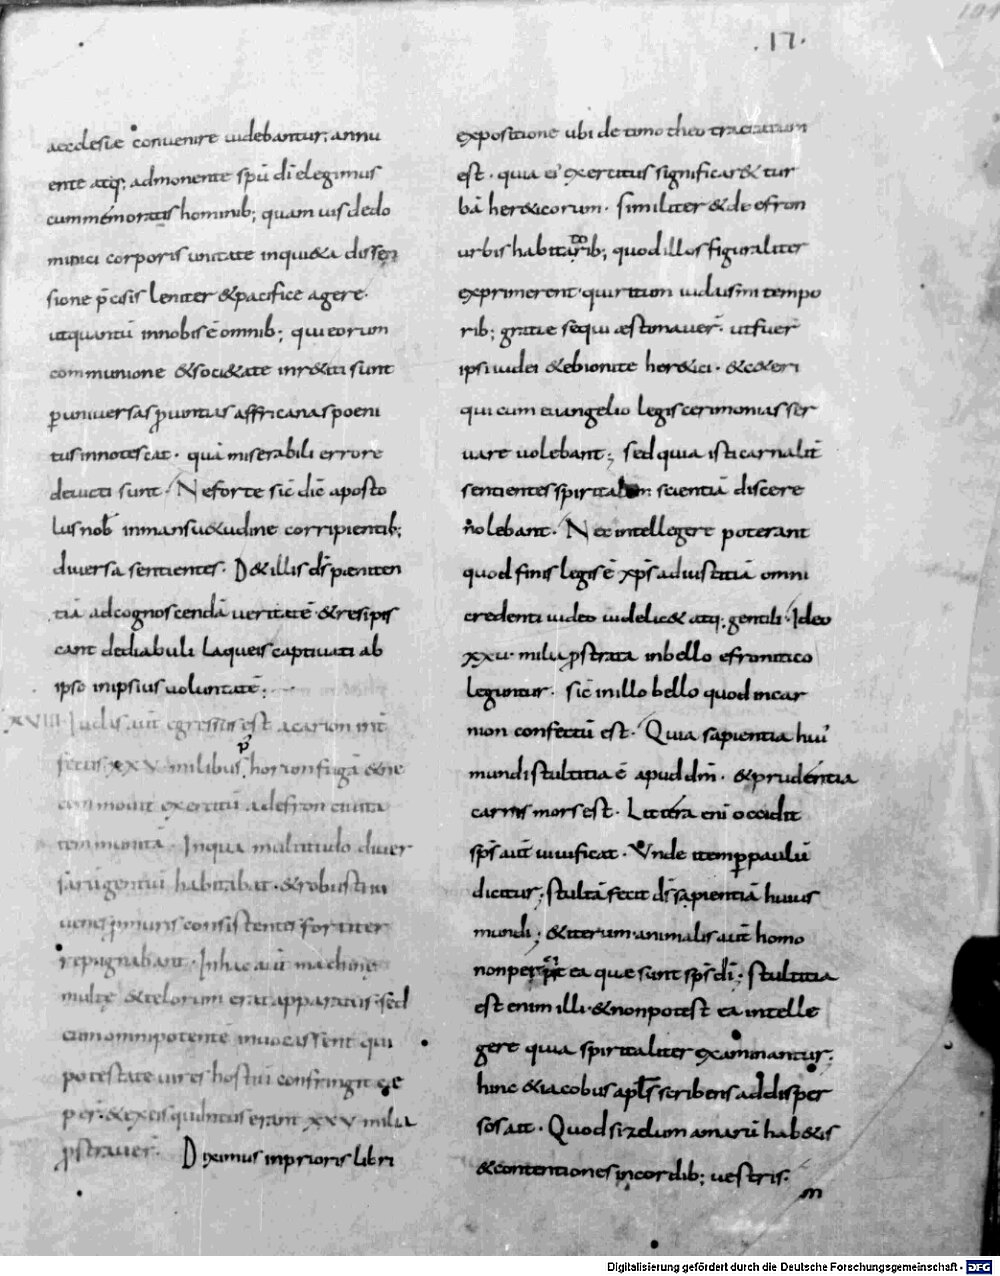 .17.
aecclesiæ conuenire uidebantur; annu
ente atq; admonente spū dī elegimus
cummemoratis hominib; quam uis de do
minici corporis unitate inquieta dissen
sione p̄cisis leniter & pacifice agere.
ut quantū in nobis ē omnib; qui eorum
communione & soci&ate inr&iti sunt
p uniuersas puintias affricanas poeni
tus innotescat. quā miserabili errore
deuicti sunt. Ne forte sic̄ dic̄ aposto
lus nob̄ in mansu&udine corripientib;
diuersa sentientes. D& illis dS pęniten
tiā ad cognoscendā ueritatē & resipis
cant de diabuli laqueis captiuati ab
ipso in ipsius uoluntatē;
XVIII. Iudas aut̄ egressus est a carion int̄
fectis XXV milibus, horion fugā & ne
con mouit exercitū ad efron ciuita
tem munitā. In qua multitudo diuer
sarū gentiū habitabat. & robusti iu
uenes p muris consistentes fortiter
repugnabant. In hac aut̄ machine
multę & telorum erat apparatus. sed
cum omnipotentē inuocassent qui
potestate uires hostiū confringit ce
per̄. & ex eis qui intus erant XXV milia
pstrauer̄. Diximus in prioris libri
expositione ubi de timotheo tractatum
est. quia ei' exercitus significar& tur
bā her&icorum. Similiter & de efron
urbis habitatorib; quod illos figuraliter
exprimerent. qui ritum iudaismi tempo
rib; gratie sequi æstimauer̄. ut fuer̄
ipsi iudei & ebionite her&ici. & c&eri
qui cum euangelio legis cerimonias ser
uare uolebant; Sed quia isti carnalit̄
sentientes spiritalem scientiā discere
nolebant. Nec intellegere poterant
quod finis legis ē xp̄s ad iustitiā omni
credenti iudeo uidelic& atq; gentili. Ideo
XXV. milia pstrata in bello efronitico
leguntur. sic in illo bello quod in car
nion confectū est. Quia sapientia hui'
mundi stultitia ē apud dm̄. & prudentia
carnis mors est. Littera eni occidit
sps̄ aut̄ uiuificat. Unde item p paulū
dicitur; stultā fecit ds̄ sapientiā huius
mundi; & iterum. animalis aut̄ homo
non percipit ea que sunt sps̄ dī; stultitia
est enim illi. & non potest ea intelle
gere quia spiritaliter examinantur;
hinc & iacobus apls̄ scribens ad disper
sos ait. Quod si zelum amarū hab&is
& contentiones in cordib; uestris.
m
Digitalisierung gefördert durch die Deutsche Forschungsgemeinschaft - DFG